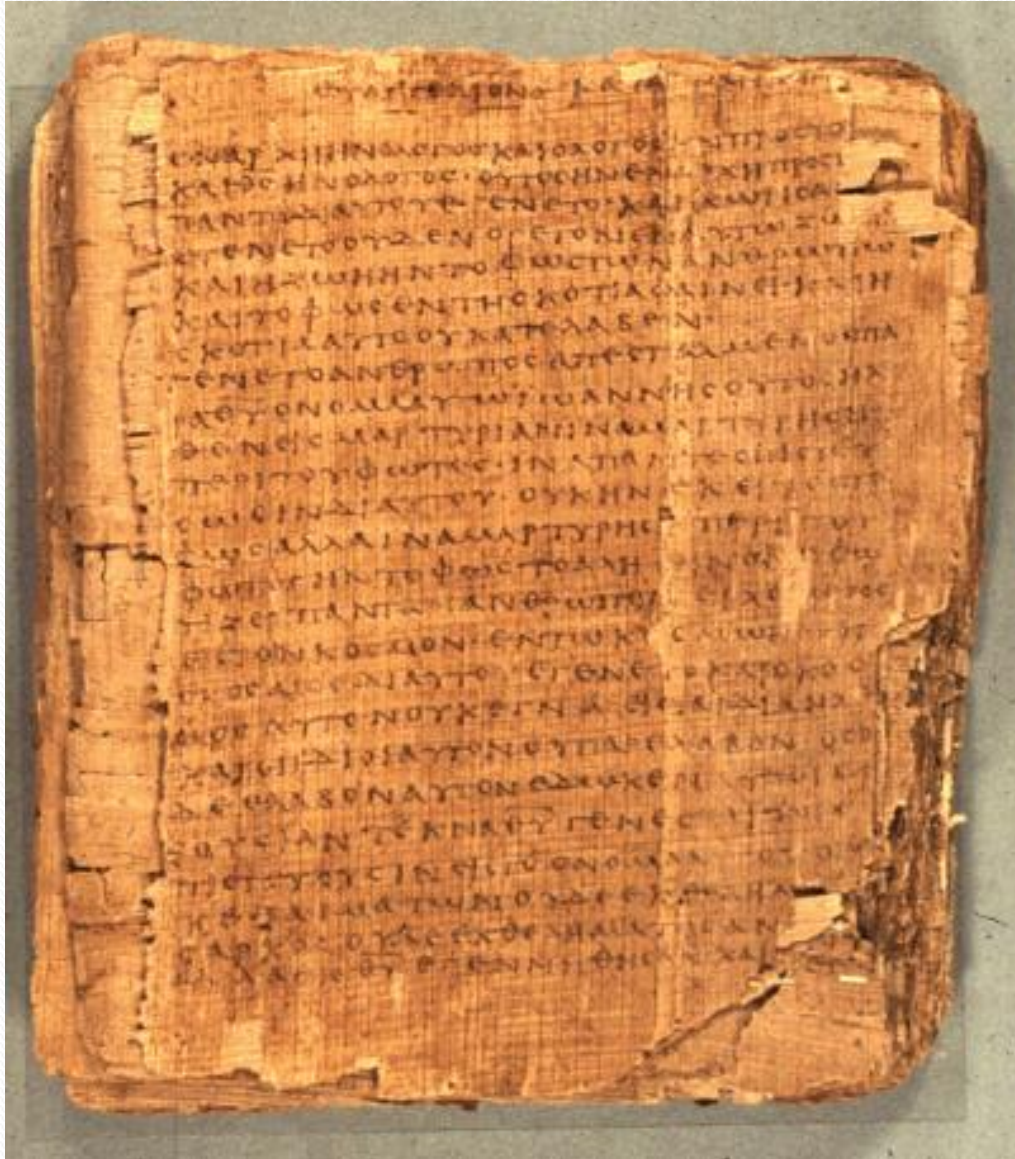 ΕΥΑΓΓΕΛΙΟΝ ΚΑΤΑ
ΕΝ ΑΡΧΗ ΗΝ Ο ΛΟΓΟΣ ΚΑΙ Ο ΛΟΓΟΣ ΗΝ ΠΡΟΣ ΤΟ
ΚΑΙ ΘΣ ΗΝ Ο ΛΟΓΟΣ · ΟΥΤΟΣ ΗΝ ΕΝ ΑΡΧΗ ΠΡΟΣ
ΠΑΝΤΑ ΔΙ ΑΥΤΟΥ ΕΓΕΝΕΤΟ · ΚΑΙ ΧΩΡΙΣ
ΕΓΕΝΕΤΟ ΟΥΔΕΝ Ο ΓΕΓΟΝΕΝ ΕΝ ΑΥΤΩ ΖΩΗ
ΚΑΙ Η ΖΩΗ ΗΝ ΤΟ ΦΩΣ ΤΩΝ ΑΝΘΡΩΠΩ
ΚΑΙ ΤΟ ΦΩΣ ΕΝ ΤΗ ΣΚΟΤΙΑ ΦΑΙΝΕΙ · ΚΑΙ Η
ΣΚΟΤΙΑ ΑΥΤΟ ΟΥ ΚΑΤΕΛΑΒΕΝ ·
ΕΓΕΝΕΤΟ ΑΝΘΡΩΠΟΣ ΑΠΕΣΤΑΛΜΕΝΟΣ ΠΑ
ΡΑ ΘΥ ΟΝΟΜΑ ΑΥΤΩ ΪΩΑΝΝΗΣ ΟΥΤΟΣ ΗΛ
ΘΕΝ ΕΙΣ ΜΑΡΤΥΡΙΑΝ ΙΝΑ ΜΑΡΤΥΡΗΣΗ
ΠΕΡΙ ΤΟΥ ΦΩΤΟΣ · ΙΝΑ ΠΑΝΤΕΣ ΠΙΣΤΕΥ
ΣΩΣΙΝ ΔΙ ΑΥΤΟΥ · ΟΥΚ ΗΝ ΕΚΕΙΝΟΣ ΤΟ
ΦΩΣ ΑΛΛΑ ΙΝΑ ΜΑΡΤΥΡΗΣΗ ΠΕΡΙ ΤΟΥ
ΦΩΤΟΣ ΗΝ ΤΟ ΦΩΣ ΤΟ ΑΛΗΘΕΙΝΟΝ Ο ΦΩ
ΤΙΖΕΙ ΠΑΝΤΑ ΑΝΘΡΩΠΟΝ ΕΡΧΟΜΕΝΟΝ
ΕΙΣ ΤΟΝ ΚΟΣΜΟΝ · ΕΝ ΤΩ ΚΟΣΜΩ ΗΝ
ΚΟΣΜΟΣ ΔΙ ΑΥΤΟΥ ΕΓΕΝΕΤΟ ΚΑΙ Ο ΚΟΣ
ΜΟΣ ΑΥΤΟΝ ΟΥΚ ΕΓΝΩ ΕΙΣ ΤΑ ΙΔΙΑ ΗΛΘΕ
ΚΑΙ ΟΙ ΙΔΙΟΙ ΑΥΤΟΝ ΟΥ ΠΑΡΕΛΑΒΟΝ ΟΣΟΙ
ΔΕ ΕΛΑΒΟΝ ΑΥΤΟΝ ΕΔΩΚΕΝ ΑΥΤΟΙΣ ΕΞ
ΟΥΣΙΑΝ ΤΕΚΝΑ ΘΥ ΓΕΝΕΣΘΑΙ ΤΟΙΣ
ΠΙΣΤΕΥΟΥΣΙΝ ΕΙΣ ΤΟ ΟΝΟΜΑ ΑΥΤΟΥ
ΕΞ ΑΙΜΑΤΩΝ ΟΥΔΕ ΕΚ ΘΕΛΗΜΑ
ΣΑΡΚΟΣ ΟΥΔΕ ΕΚ ΘΕΛΗΜΑΤΟΣ ΑΝ
ΑΛΛΑ ΕΚ ΘΥ ΕΓΕΝΝΗΘΗΣΑΝ ΚΑΙ